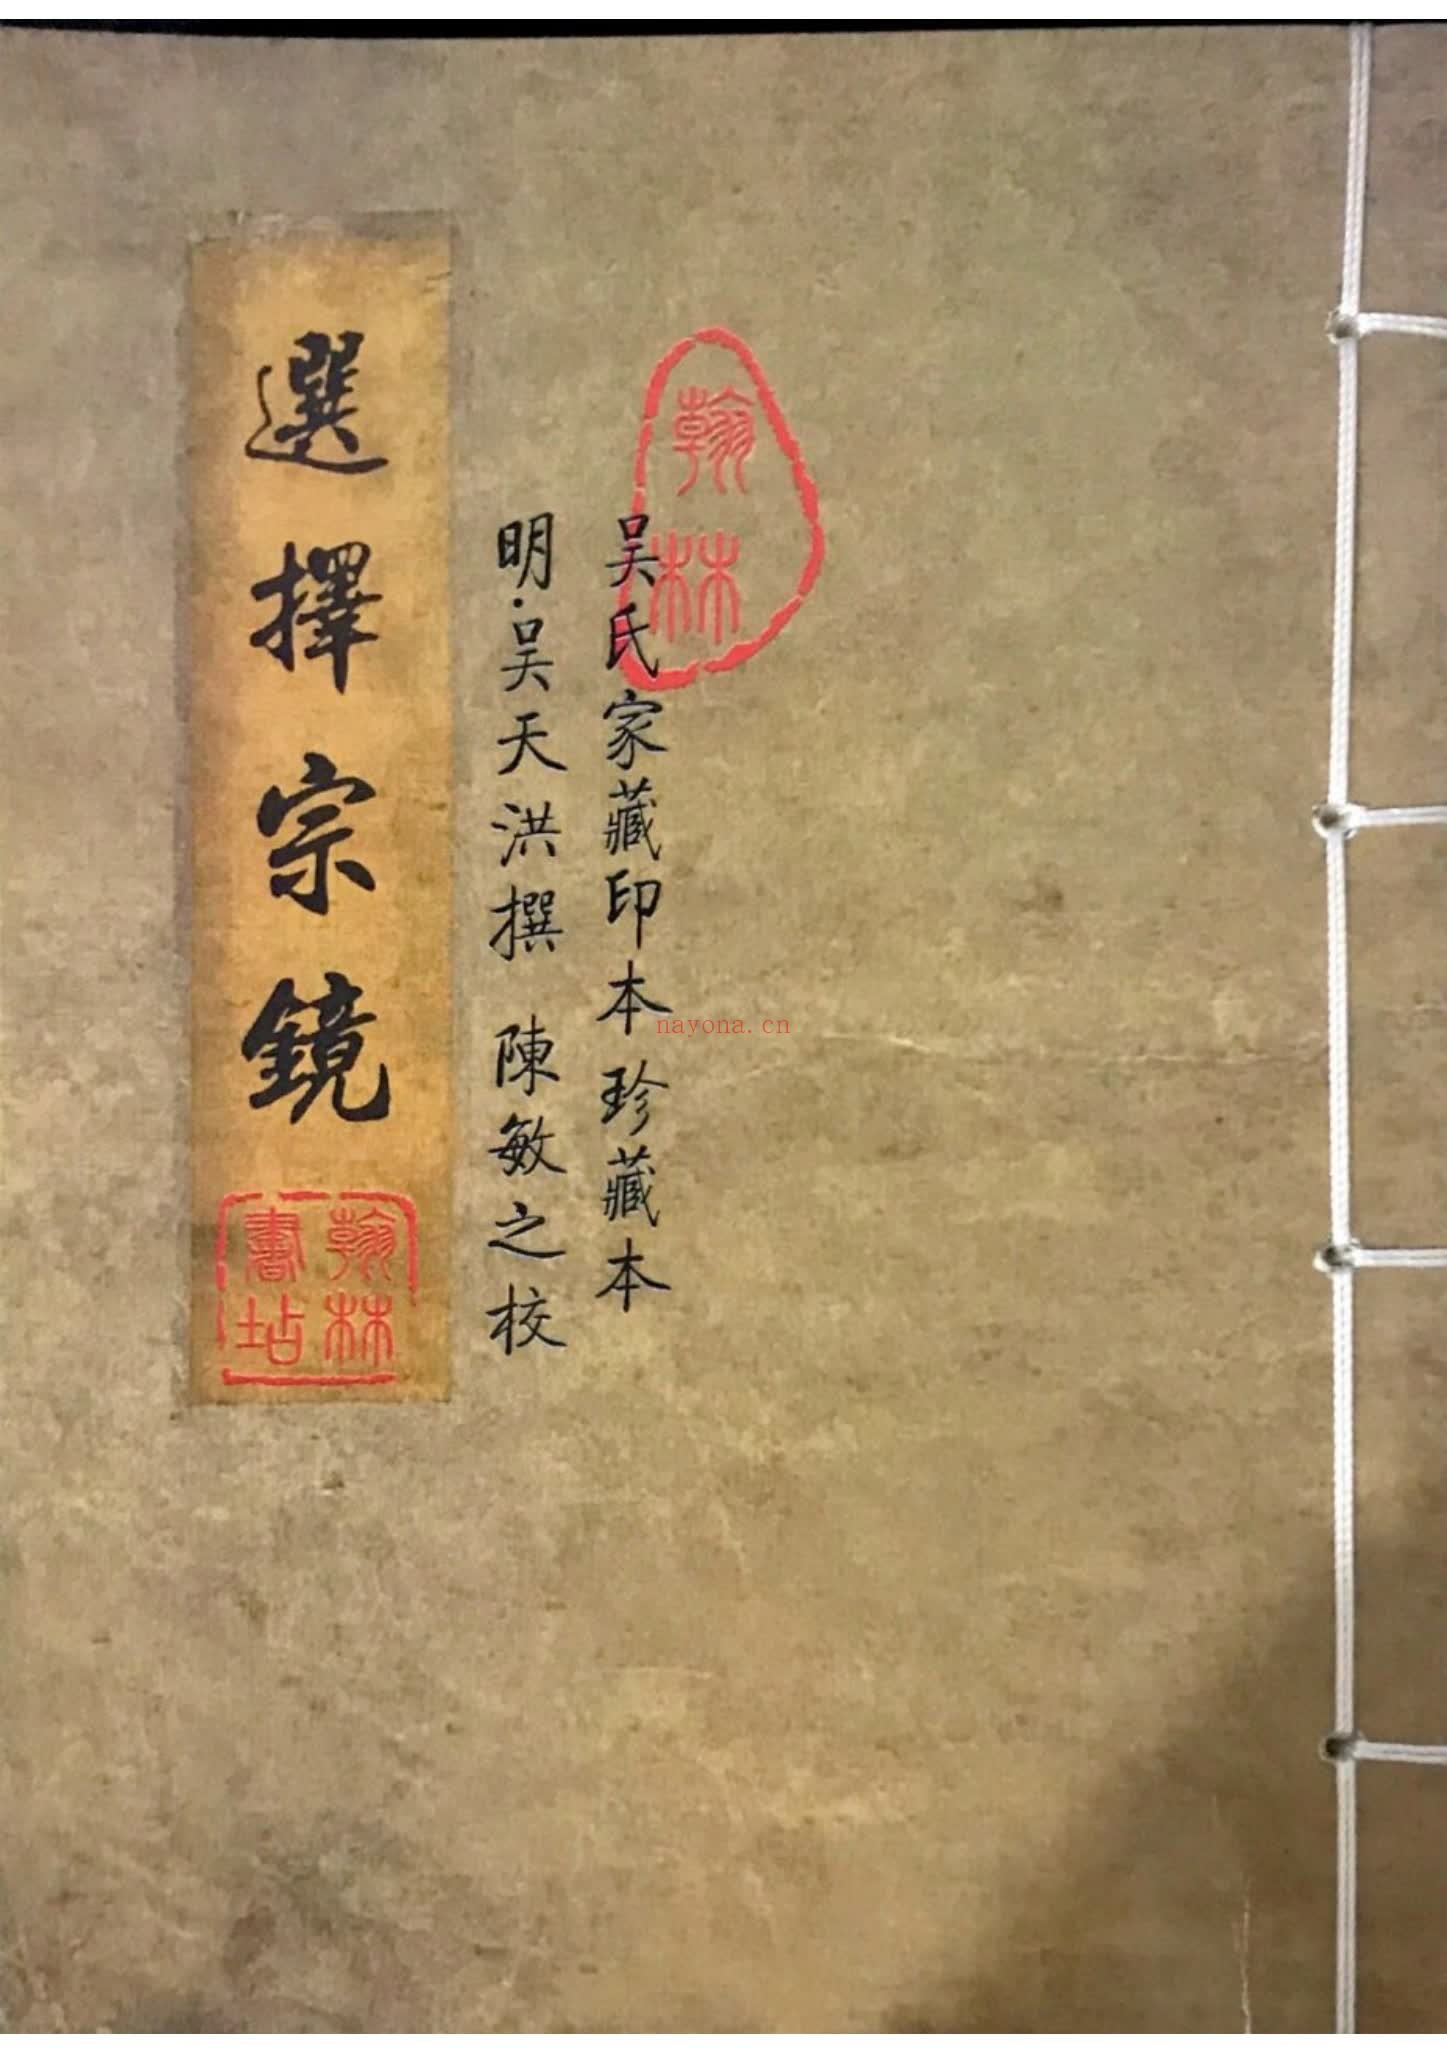 翰林
吴氏家藏印本珍藏本
明·吴天洪撰 陳敏之校
選擇宗鏡
翰林書站
nayona.cn